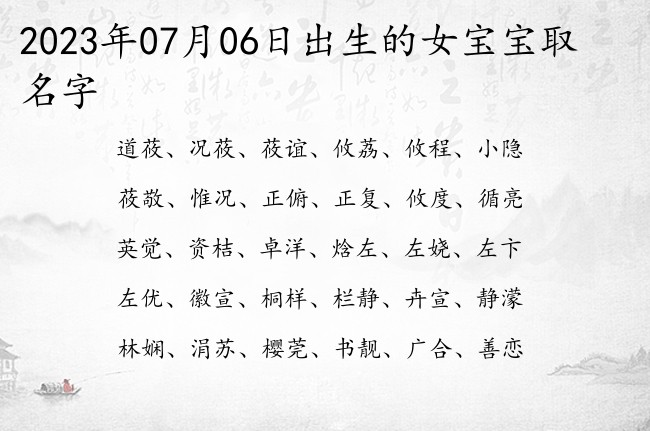 2023年07月06日出生的女宝宝取
名字
道莜、况莜、莜谊、攸荔、攸程、小隐
莜敬、惟况、正俯、正复、攸度、循亮
英觉、资桔、卓洋、焓左、左娆、左卞
左优、徽宣、桐样、栏静、卉宣、静濛
林娴、涓苏、樱莞、书靓、广合、善恋